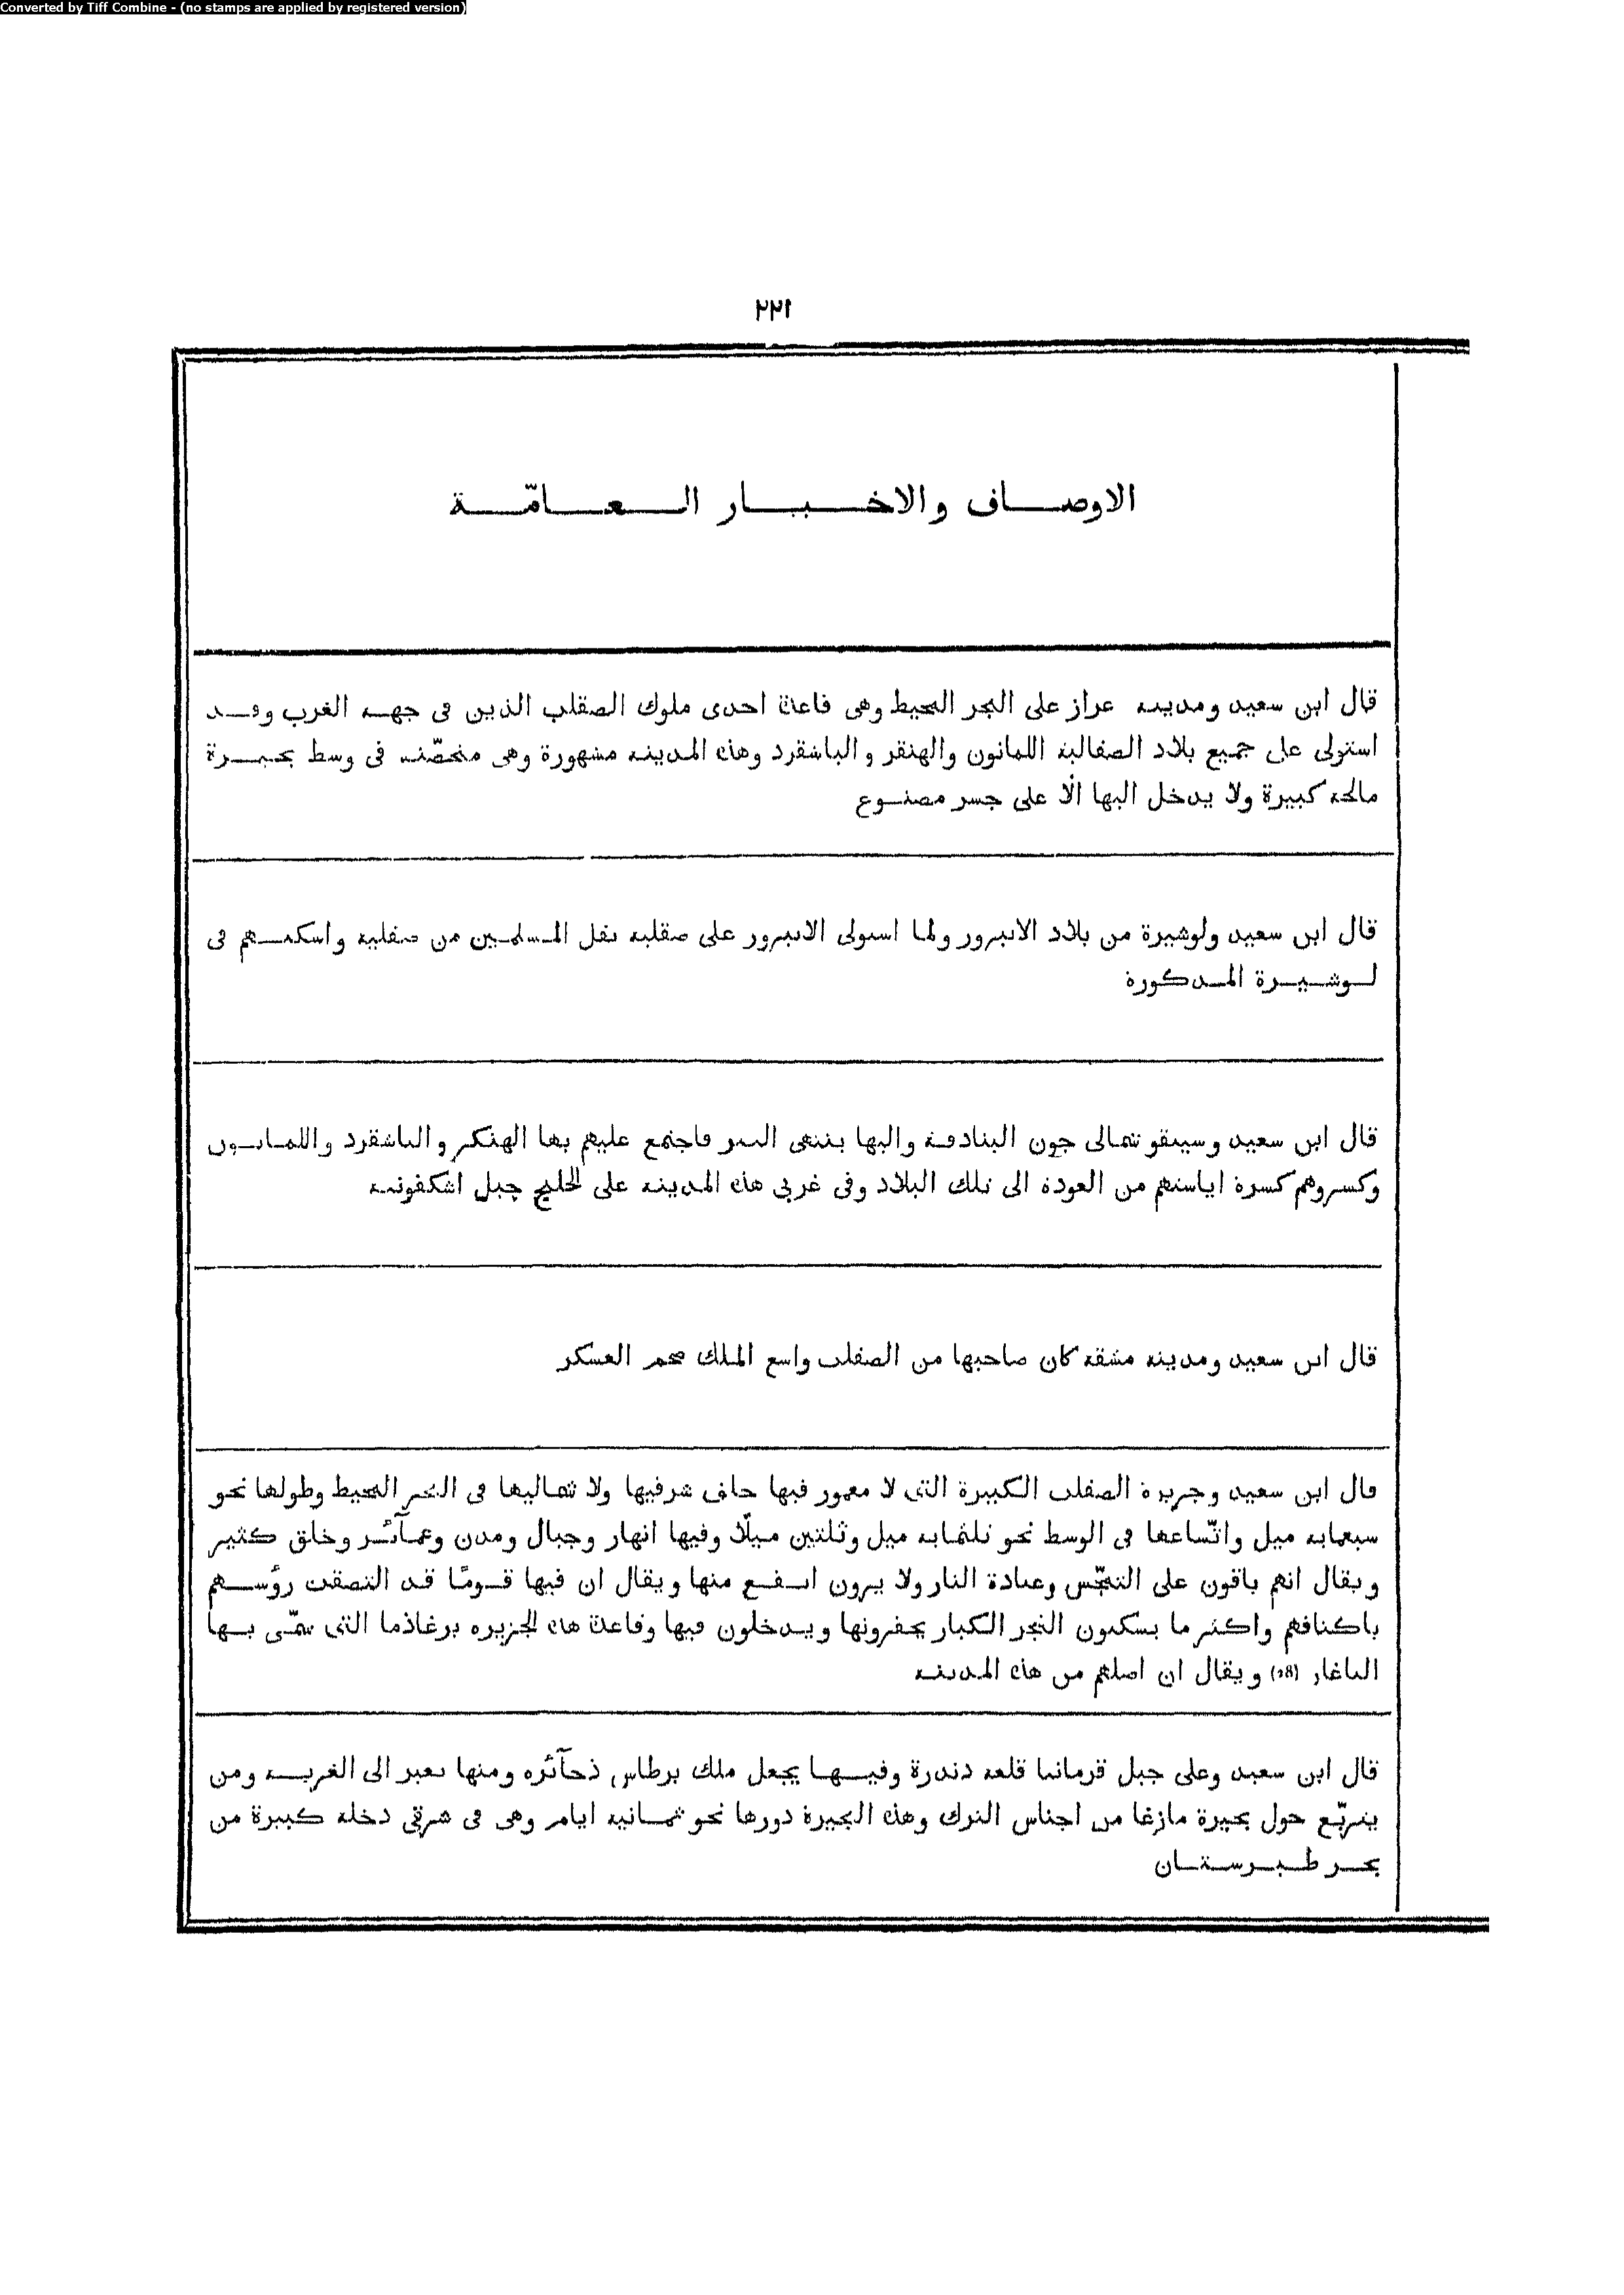 Converted by Tiff Combine - (no stamps are applied by registered version)
٢٢١
الاوصاف والاخبار العامّة
قال ابن سعيد ومدينه عراز على البحر المحيط وهى قاعدة احدى ملوك الصقلب الذين فى جهه الغرب وقد
استولى على جميع بلاد الصقالبة اللمانون والهنقر والباشقرد وهذه المدينه مشهورة وهى متحصّنه فى وسط بحيرة
مالحه كبيرة ولا يدخل اليها الّا على جسر مصنوع
قال ابن سعيد ولوشيرة من بلاد الانبرور ولما استولى الانبرور على صقليه نقل المسلمين من صقليه واسكنهم فى
لوشيرة المذكورة
قال ابن سعيد وسيبقو شمالى جون البنادقة واليها ينتهى التتر فاجتمع عليهم بها الهنكر والباشقرد واللمانيون
وكسروهم كسرة اياستهم من العودة الى تلك البلاد وفى غربى هذه المدينه على الخليج جبل اشكفونيه
قال ابن سعيد ومدينه مشقه كان صاحبها من الصقلب واسع الملك ضخم العسكر
قال ابن سعيد وجزيرة الصقلب الكبيرة التى لا معمور فيها خلف شرقيها ولا شماليها فى البحر المحيط وطولها نحو
سبعمايه ميل واتّساعها فى الوسط نحو ثلثمايه ميل وثلثين ميلًا وفيها انهار وجبال ومدن وعمآئر وخلق كثير
ويقال انهم باقون على التمجّس وعبادة النار ولا يرون انفع منها ويقال ان فيها قومًا قد التصقت رؤسهم
باكتافهم واكثر ما يسكنون الشجر الكبار يحفرونها ويدخلون فيها وقاعدة هذه الجزيره برغاذما التى سمّى بها
البلغار (28) ويقال ان اصلهم من هذه المدينه
قال ابن سعيد وعلى جبل قرمانيا قلعه دندرة وفيها يجعل ملك برطاس ذخآئره ومنها يعبر الى الغربيه ومن
يتربّع حول بحيرة مازغا من اجناس الترك وهذه البحيرة دورها نحو ثمانيه ايام وهى فى شرقى دخله كبيرة من
بحر طبرستان